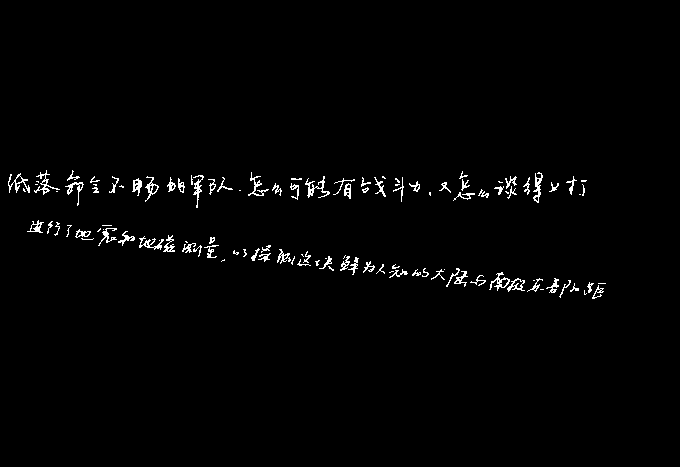 低落命令不畅的军队.怎么可能有战斗力,又怎么谈得上打
进行了地震和地磁测量,以探测这块鲜为人知的大陆与南极东部的距